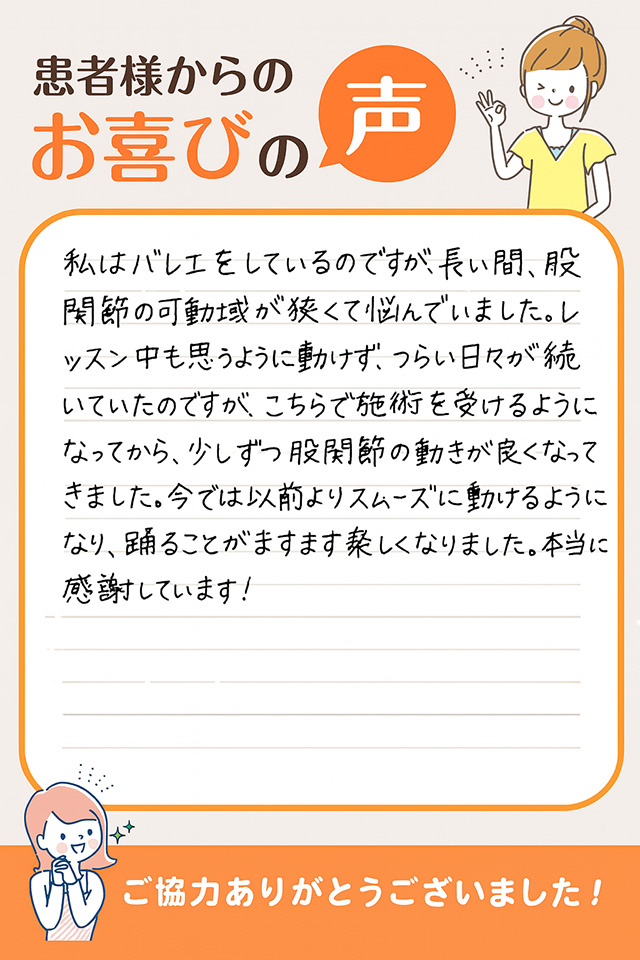 患者様からの
お喜びの声
私はバレエをしているのですが、長い間、股
関節の可動域が狭くて悩んでいました。レ
ッスン中も思うように動けず、つらい日々が続
いていたのですが、こちらで施術を受けるように
なってから、少しずつ股関節の動きが良くなって
きました。今では以前よりスムーズに動けるように
なり、踊ることがますます楽しくなりました。本当に
感謝しています！
ご協力ありがとうございました！